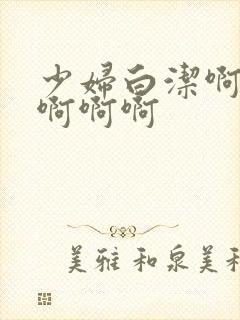 少婦白潔啊
啊啊啊
美雅 和泉美和